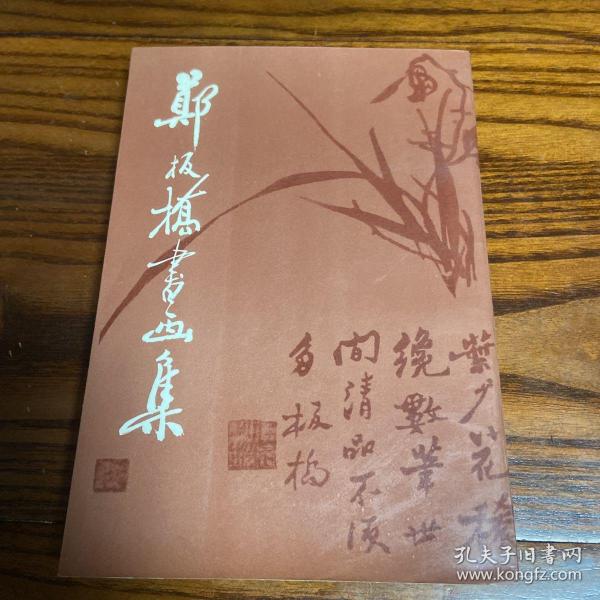 鄭板橋書画集
葉少花稀
纔數筆世
间清品不须
多板橋
孔夫子旧书网
www.kongfz.com